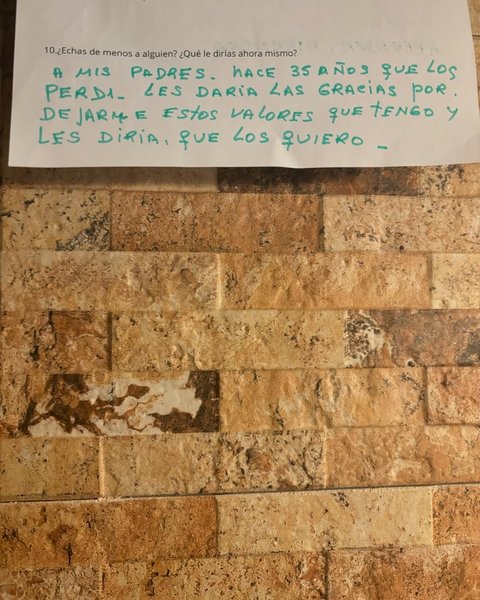 10.¿Echas de menos a alguien? ¿Qué le dirías ahora mismo?
A MIS PADRES. HACE 35 AÑOS QUE LOS
PERDI_ LES DARIA LAS GRACIAS POR.
DEJARME ESTOS VALORES QUE TENGO Y
LES DIRIA, QUE LOS QUIERO _